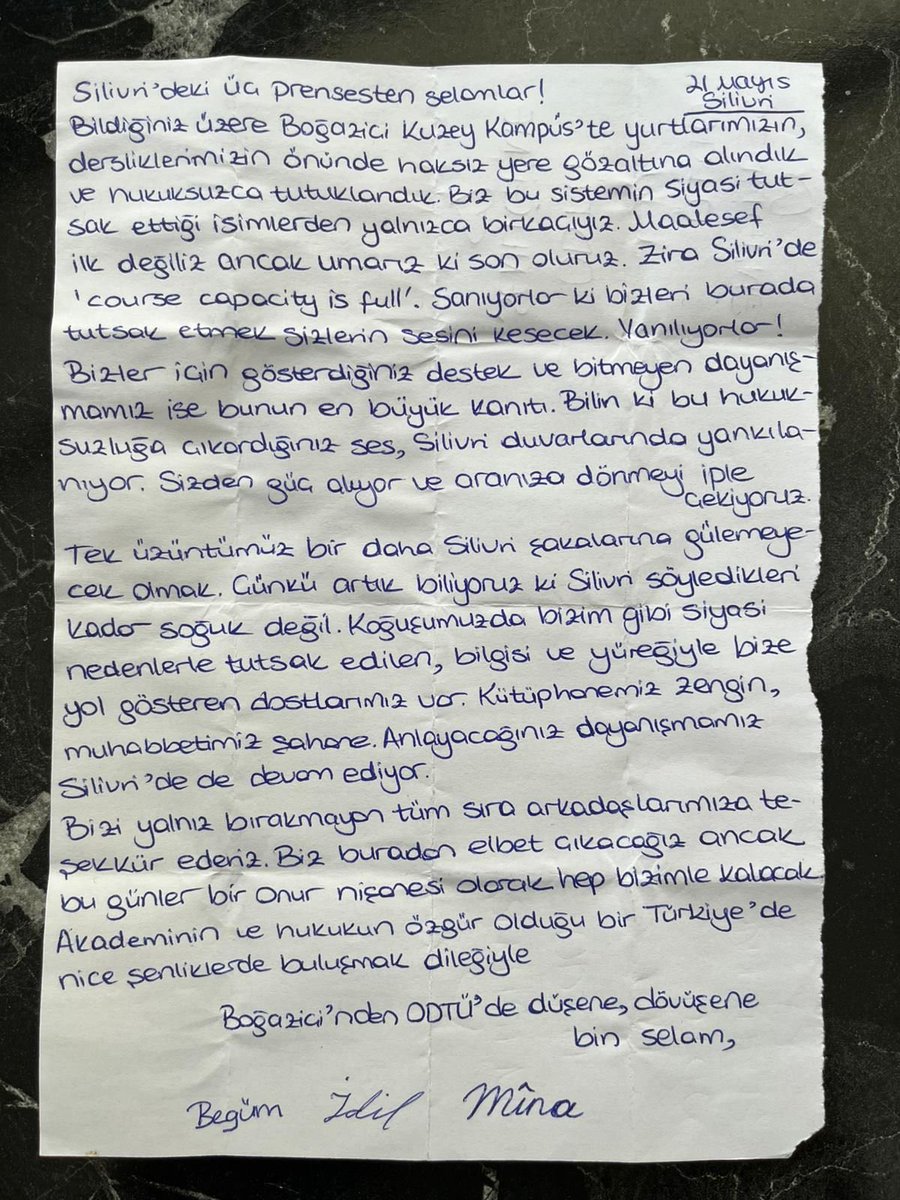 Silivri'deki üç prensesten selamlar!
21 Mayıs
Silivri
Bildiğiniz üzere Boğaziçi Kuzey Kampüs'te yurtlarımızın,
dersliklerimizin önünde haksız yere gözaltına alındık
ve hukuksuzca tutuklandık. Biz bu sistemin siyasi tut-
sak ettiği isimlerden yalnızca birkaçıyız. Maalesef
ilk değiliz ancak umarız ki son oluruz. Zira Silivri'de
'course capacity is full'. Sanıyorlar ki bizleri burada
tutsak etmek sizlerin sesini kesecek. Yanılıyorlar!
Bizler için gösterdiğiniz destek ve bitmeyen dayanış-
mamız ise bunun en büyük kanıtı. Bilin ki bu hukuk-
suzluğa çıkardığınız ses, Silivri duvarlarında yankıla-
nıyor. Sizden güç alıyor ve aranıza dönmeyi iple
çekiyoruz.
Tek üzüntümüz bir daha Silivri şakalarına gülemeye-
cek olmak. Çünkü artık biliyoruz ki Silivri söyledikleri
kadar soğuk değil. Koğuşumuzda bizim gibi siyasi
nedenlerle tutsak edilen, bilgisi ve yüreğiyle bize
yol gösteren dostlarımız var. Kütüphanemiz zengin,
muhabbetimiz şahane. Anlayacağınız dayanışmamız
Silivri'de de devam ediyor.
Bizi yalnız bırakmayan tüm sıra arkadaşlarımıza te-
şekkür ederiz. Biz buradan elbet çıkacağız ancak
bu günler bir onur nişanesi olarak hep bizimle kalacak.
Akademinin ve hukukun özgür olduğu bir Türkiye'de
nice şenliklerde buluşmak dileğiyle
Boğaziçi'nden ODTÜ'de düşene, dövüşene
bin selam,
Begüm İdil Mîna